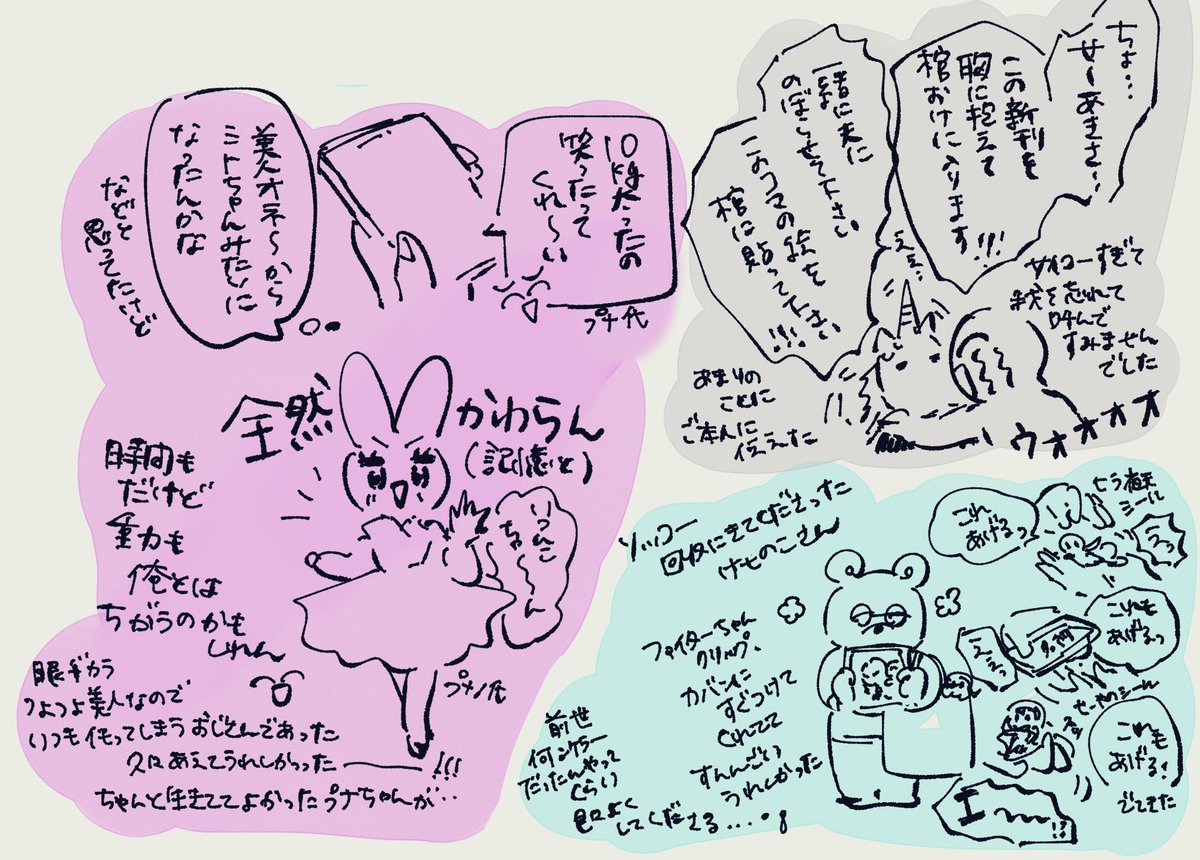 ちょ…
せーあきさ〜
この新刊を
胸に抱えて
棺おけに入ります
!!!
一緒に天に
のぼらせて下さい
このコマの絵を
棺に貼って下さい
!!!!
ええ…
サイコーすぎて
我を忘れて
叫んで
すみません
でした
あまりの
ことに
ご本人に
伝えた
ウオオオオ
10kg太ったの
笑ったって
くれ〜い
プナ代
美人オネ〜から
ミトちゃんみたいに
なったんかな
などと
思ってたけど
全然
かわらん
(記憶と)
いつんこ
ちゃ〜ん
時間も
だけど
重力も
俺とは
ちがうのかも
しれん
プナ代
眼ヂカラ
つよつよ美人なので
いつもイモってしまうおじさんであった
久々にあえてうれしかった――!!!
ちゃんと生きててよかったプナちゃんが‥
ソッコー
回収にきてくださった
けせのこさん
ファイターちゃん
クリップ、
カバンに
すぐつけて
くれてて
すんごい
うれしかった
前世
何ンケラー
だったんやって
くらい
良くして
くださる…
これ
あげるっ
シール
うっ
これも
あげるっ
えぇっ
せーやのシール
これも
あげる!
でてきた
エ〜〜!?